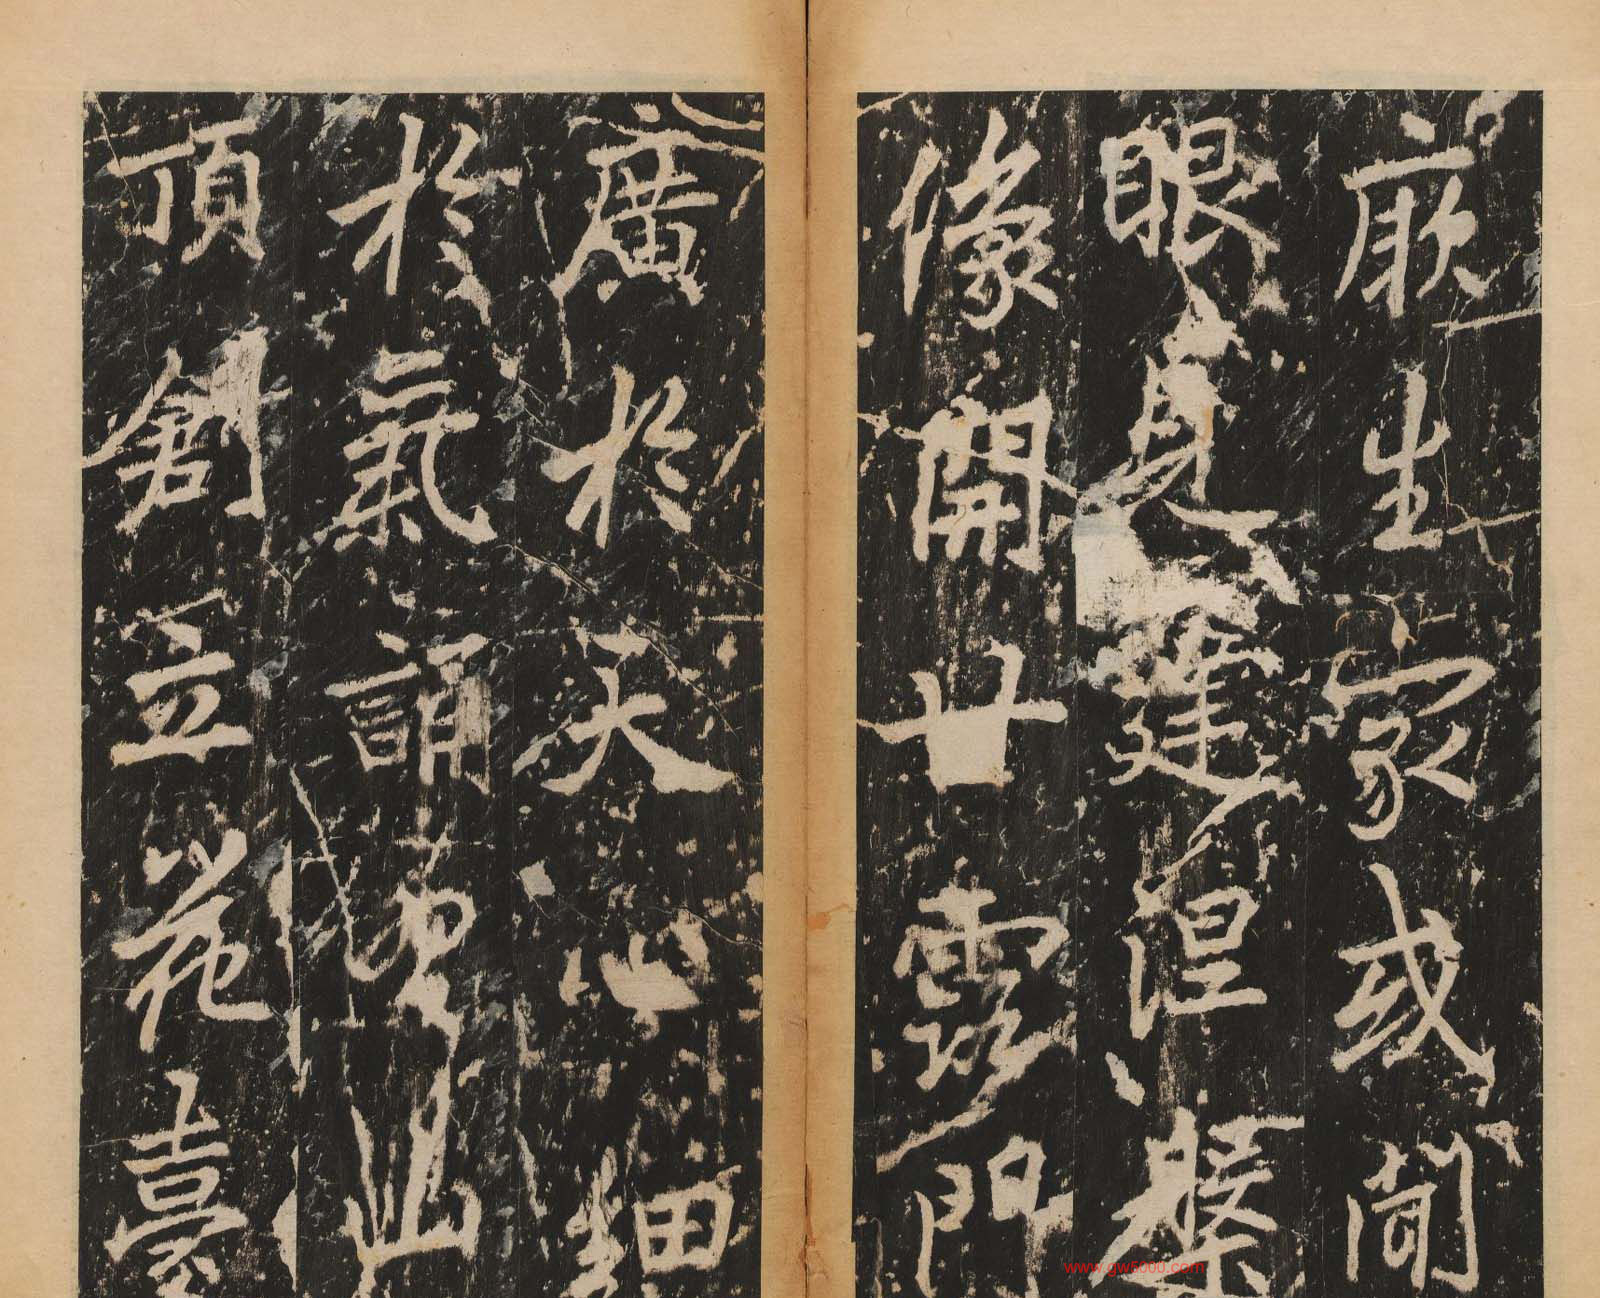 厥生家或
眼見逢涅槃
像開甘露門
廣於天心細
於氣誦山
頂創立苑臺
www.gw5000.com